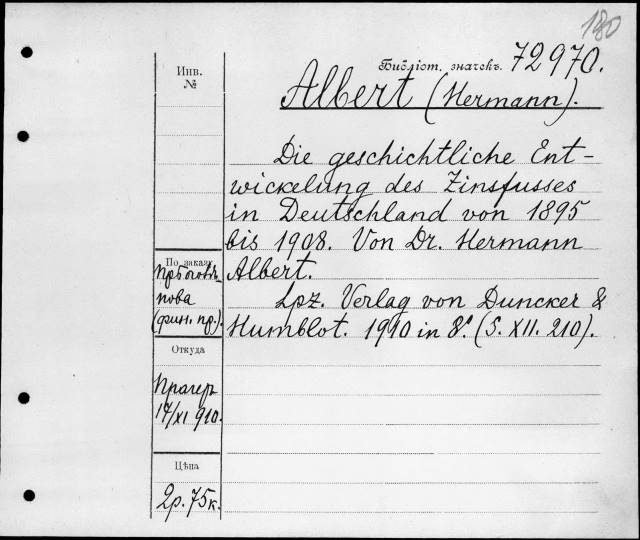 180
Инв.
№
Библіот. значекъ. 72970.
Albert (Hermann).
Die geschichtliche Ent-
wickelung des Zinsfusses
in Deutschland von 1895
bis 1908. Von Dr. Hermann
Albert.
Lpz. Verlag von Duncker &
Humblot. 1910 in 8°. (S. XII. 210).
По заказу
нова
(фин. пр.).
Откуда
Прагеръ
17/XI 910.
Цѣна
2р. 75к.